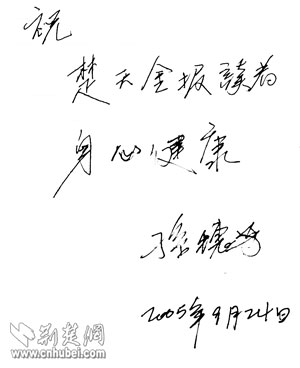 祝
楚天金报讀者
身心健康
孫穗芳
2005年9月24日
荊楚網
www.cnhubei.com